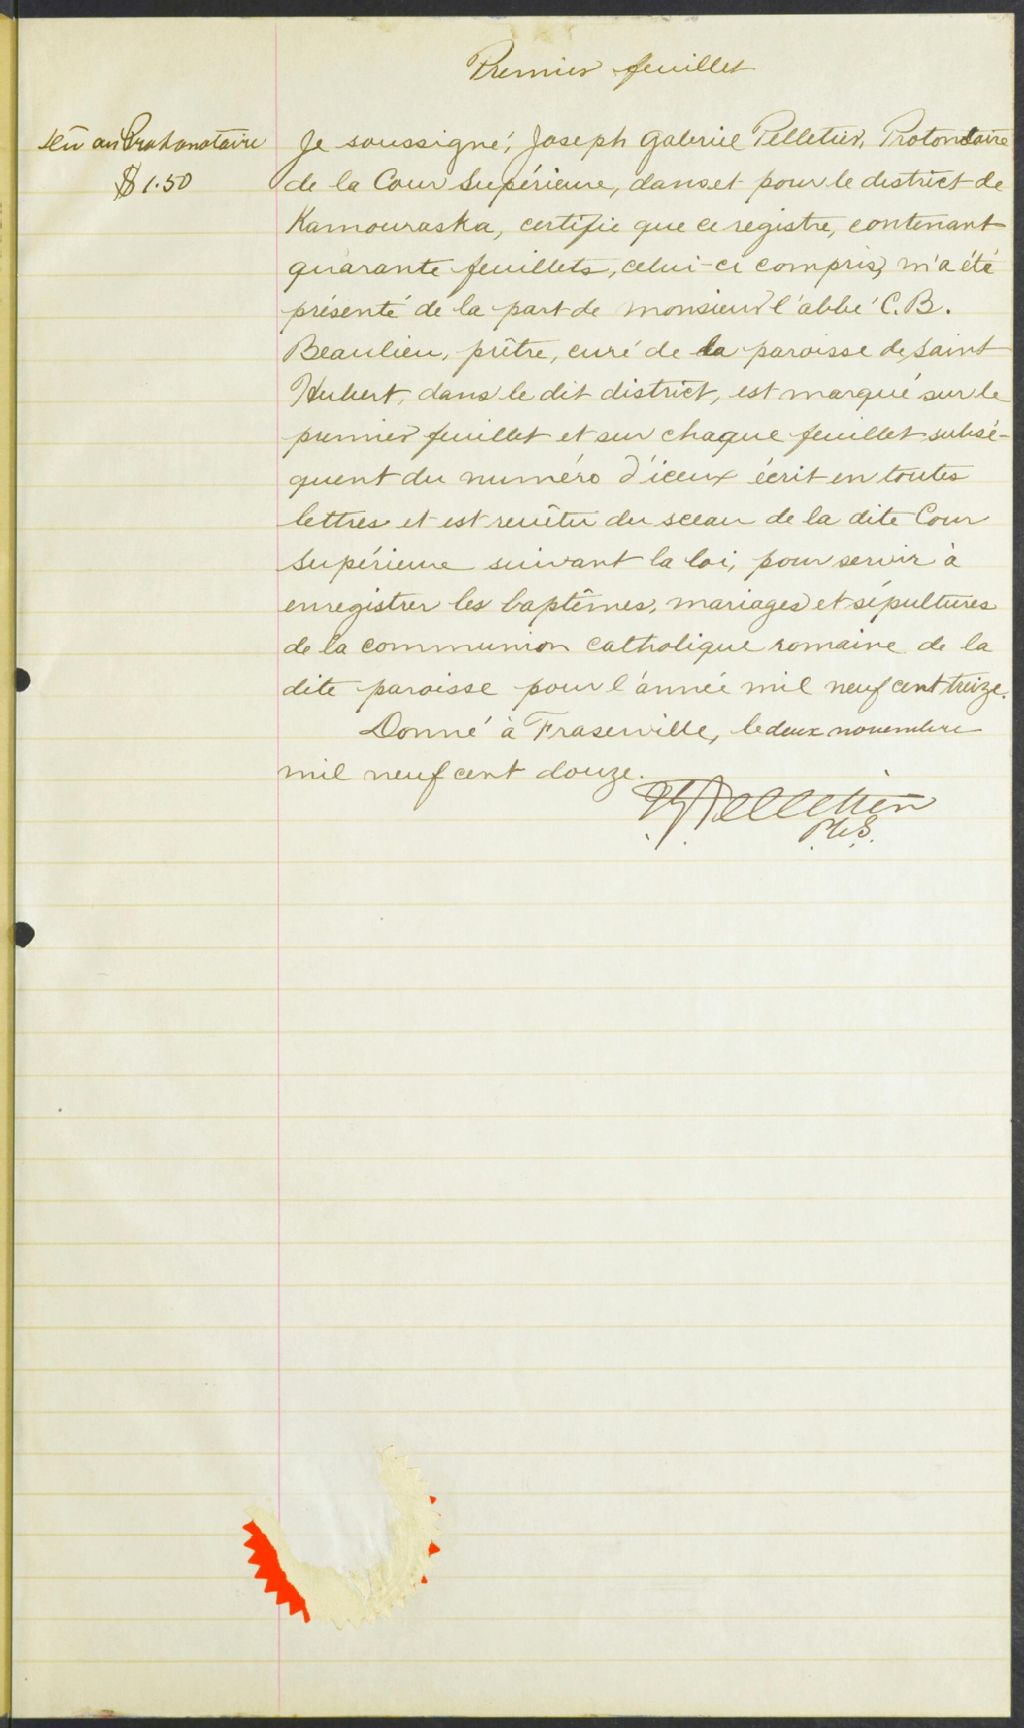 Premier feuillet
Dû au Protonotaire
$1.50
Je soussigné, Joseph Gabriel Pelletier, Protonotaire
de la Cour Supérieure, dans et pour le district de
Kamouraska, certifie que ce registre, contenant
quarante feuillets, celui-ci compris, m'a été
présenté de la part de monsieur l'abbé C. B.
Beaulieu, prêtre, curé de la paroisse de Saint
Hubert, dans le dit district, est marqué sur le
premier feuillet et sur chaque feuillet subsé-
quent du numéro d'iceux écrit en toutes
lettres et est revêtu du sceau de la dite Cour
Supérieure suivant la loi, pour servir à
enregistrer les baptêmes, mariages et sépultures
de la communion catholique romaine de la
dite paroisse pour l'année mil neuf cent treize.
Donné à Fraserville, le deux novembre
mil neuf cent douze.
Pelletier
P.C.S.